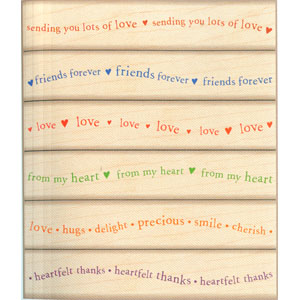 sending you lots of love ♥ sending you lots of love ♥
♥ friends forever ♥ friends forever ♥ friends forever
♥ love ♥ love ♥ love ♥ love ♥ love ♥ love ♥
from my heart ♥ from my heart ♥ from my heart
love • hugs • delight • precious • smile • cherish •
• heartfelt thanks • heartfelt thanks • heartfelt thanks